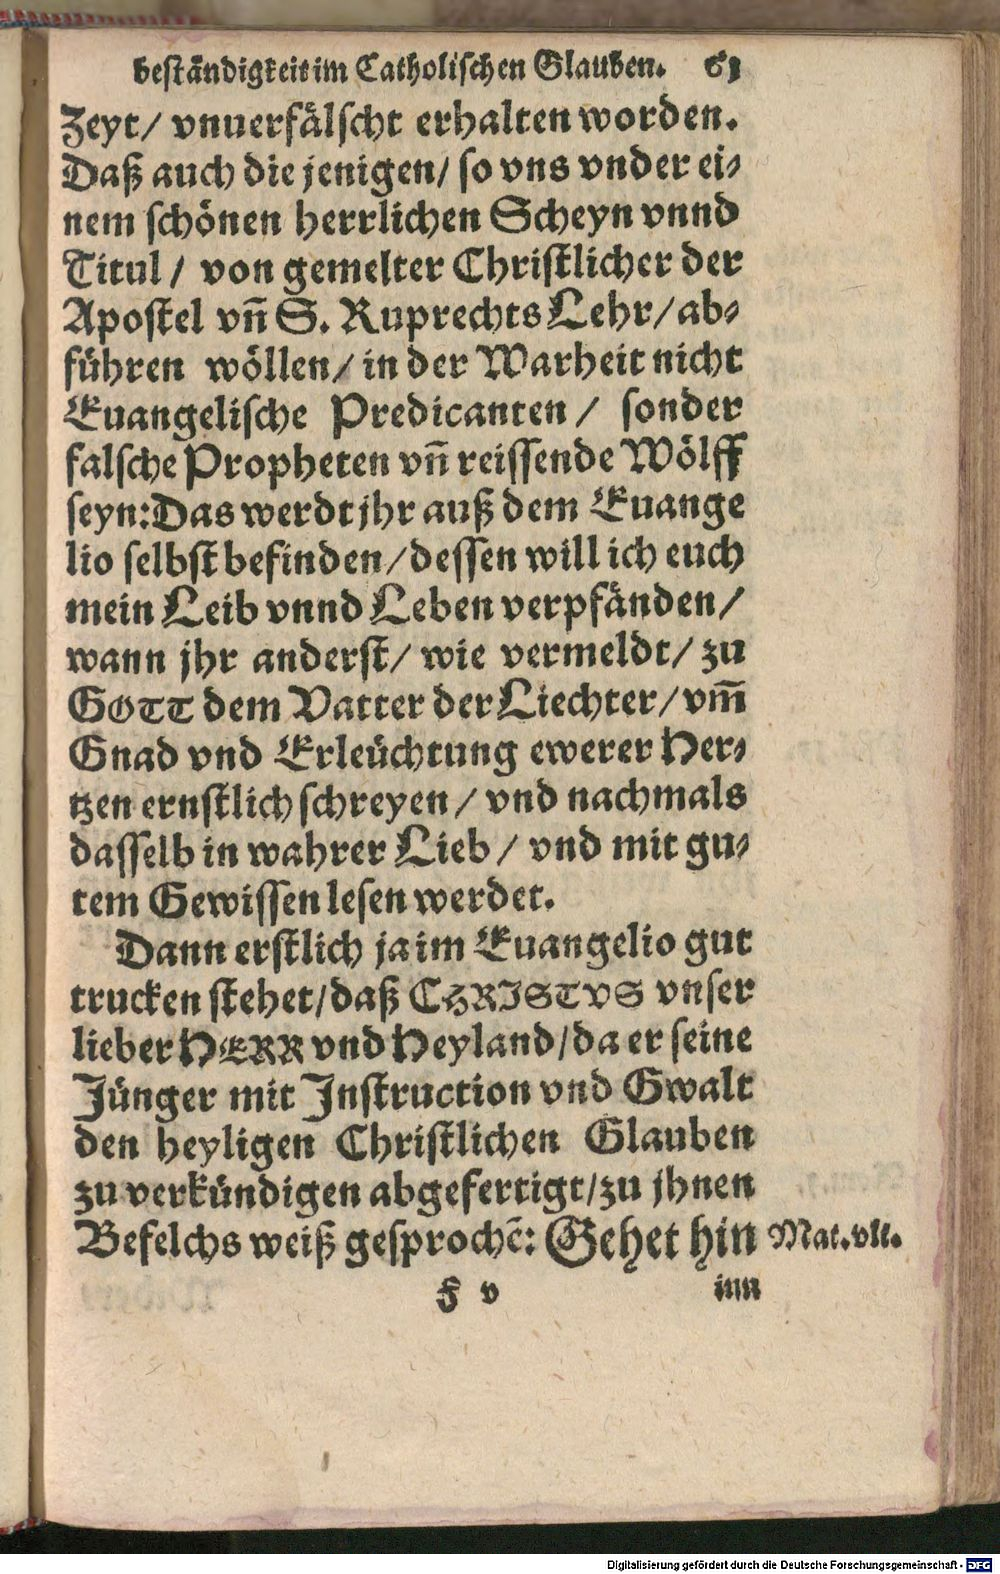 beständigkeit im Catholischen Glauben. 61
Zeyt/ vnuerfälscht erhalten worden.
Daß auch die jenigen/ so vns vnder ei-
nem schönen herrlichen Scheyn vnnd
Titul/ von gemelter Christlicher der
Apostel vñ S. Ruprechts Lehr/ ab-
führen wöllen/ in der Warheit nicht
Euangelische Predicanten/ sonder
falsche Propheten vñ reissende Wölff
seyn: Das werdt jhr auß dem Euange
lio selbst befinden/ dessen will ich euch
mein Leib vnnd Leben verpfänden/
wann jhr anderst/ wie vermeldt/ zu
GOTT dem Vatter der Liechter/ vm̃
Gnad vnd Erleüchtung ewerer Her-
tzen ernstlich schreyen/ vnd nachmals
dasselb in wahrer Lieb/ vnd mit gu-
tem Gewissen lesen werdet.
Dann erstlich ja im Euangelio gut
trucken stehet/ daß CHRISTVS vnser
lieber HERR vnd Heyland/ da er seine
Jünger mit Instruction vnd Gwalt
den heyligen Christlichen Glauben
zu verkündigen abgefertigt/ zu jhnen
Befelchs weiß gesprochẽ: Gehet hin Mat. vlt.
F v inn
Digitalisierung gefördert durch die Deutsche Forschungsgemeinschaft - DFG